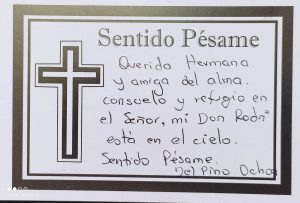 Sentido Pésame
Querida Hermana
y amiga del alma.
consuelo y refugio en
el Señor, mi Don Rodrº
está en el cielo.
Sentido Pésame.
Del Pino Ochoa